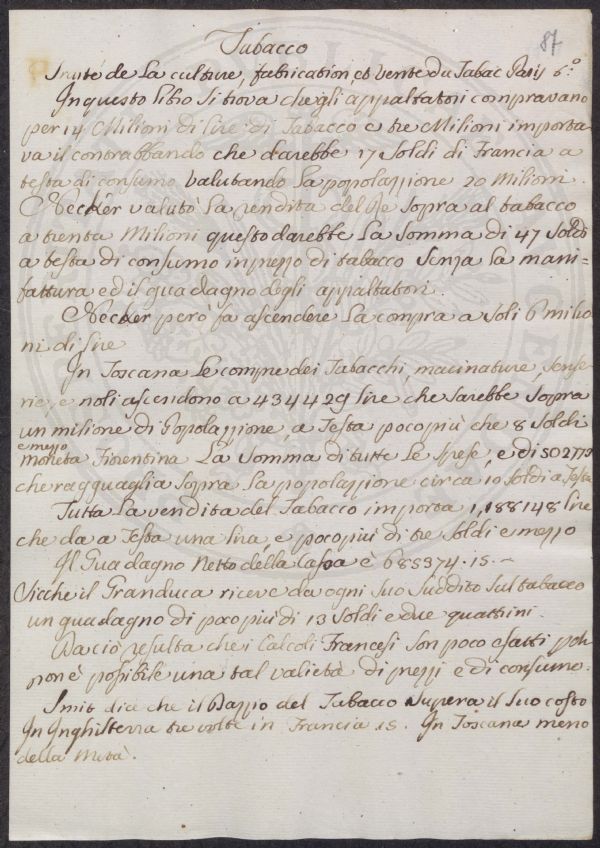 87
Tabacco
Traité de La culture, fabrication et vente du Tabac Paris 6.o
In questo libro Si trova che gli appaltatori compravano
per 14 Milioni di lire di Tabacco e tre Milioni importa
va il contrabbando che darebbe 17 Soldi di Francia a
testa di consumo valutando La popolazzione 20 Milioni.
Necker valutò La rendita del Re Sopra al tabacco
a trenta Milioni questo darebbe La Somma di 47 Soldi
a testa di consumo in prezzo di tabacco Senza La mani-
fattura ed il guadagno degli appaltatori.
Necker pero fa ascendere La compra a Soli 6 milio
ni di lire
In Toscana Le compre dei Tabacchi, macinature, Sense
rie, e noli ascendono a 434429 lire che Sarebbe Sopra
un milione di Popolazzione, a Testa poco più che 8 Soldi
e mezzo
moneta Fiorentina La Somma di tutte Le Spese, e di 502773
che ragguaglia Sopra La popolazzione circa 10 Soldi a Testa
Tutta La vendita del Tabacco importa 1,188148 lire
che da a Testa una lira, e poco più di tre Soldi e mezzo
Il Guadagno Netto della Cassa è 685374.15.-
Sicche il Granduca riceve da ogni Suo Suddito Sul tabacco
un guadagno di poco più di 13 Soldi e due quattrini.
Da ciò resulta che i Calcoli Francesi Son poco esatti poh
non è possibile una tal varietà di prezzi e di consumo.
Smit dia che il Dazzio del Tabacco Supera il Suo costo
In Inghilterra tre volte in Francia 15. In Toscana meno
della Metà.